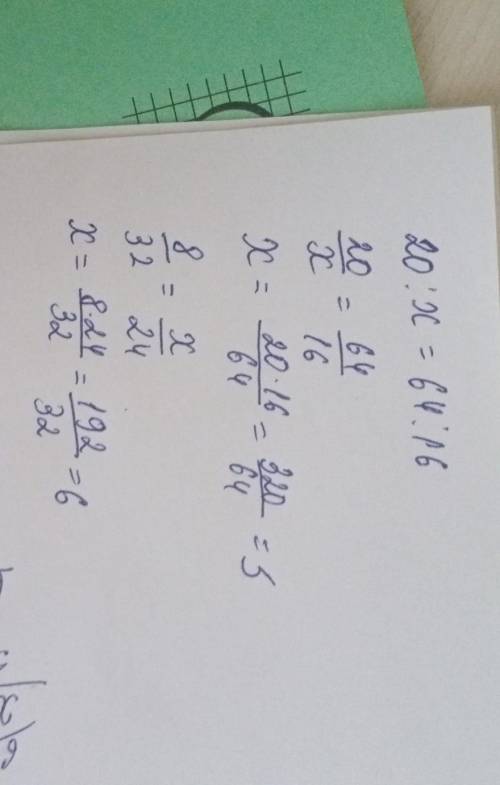 20 : x = 64 : 16
20/x = 64/16
x = 20·16/64 = 320/64 = 5
8/32 = x/24
x = 8·24/32 = 192/32 = 6